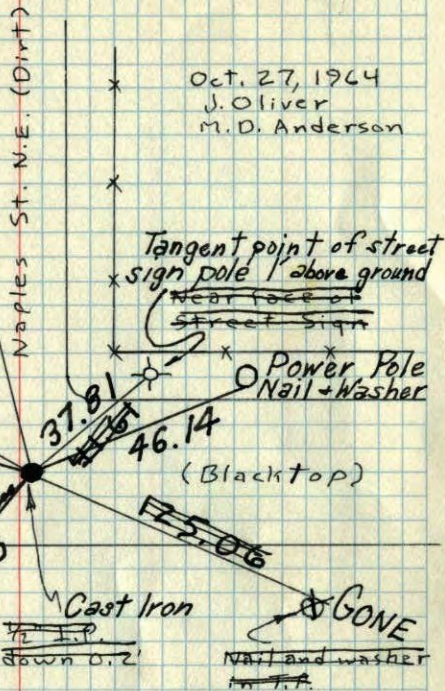 Naples St. N.E. (Dirt)
Oct. 27, 1964
J. Oliver
M.D. Anderson
Tangent point of street
sign pole 1' above ground
Near face of
Street Sign
Power Pole
Nail + Washer
37.81
46.14
(Blacktop)
25.06
Cast Iron
1/2 I.P.
down 0.2'
GONE
Nail and washer
in T.P.